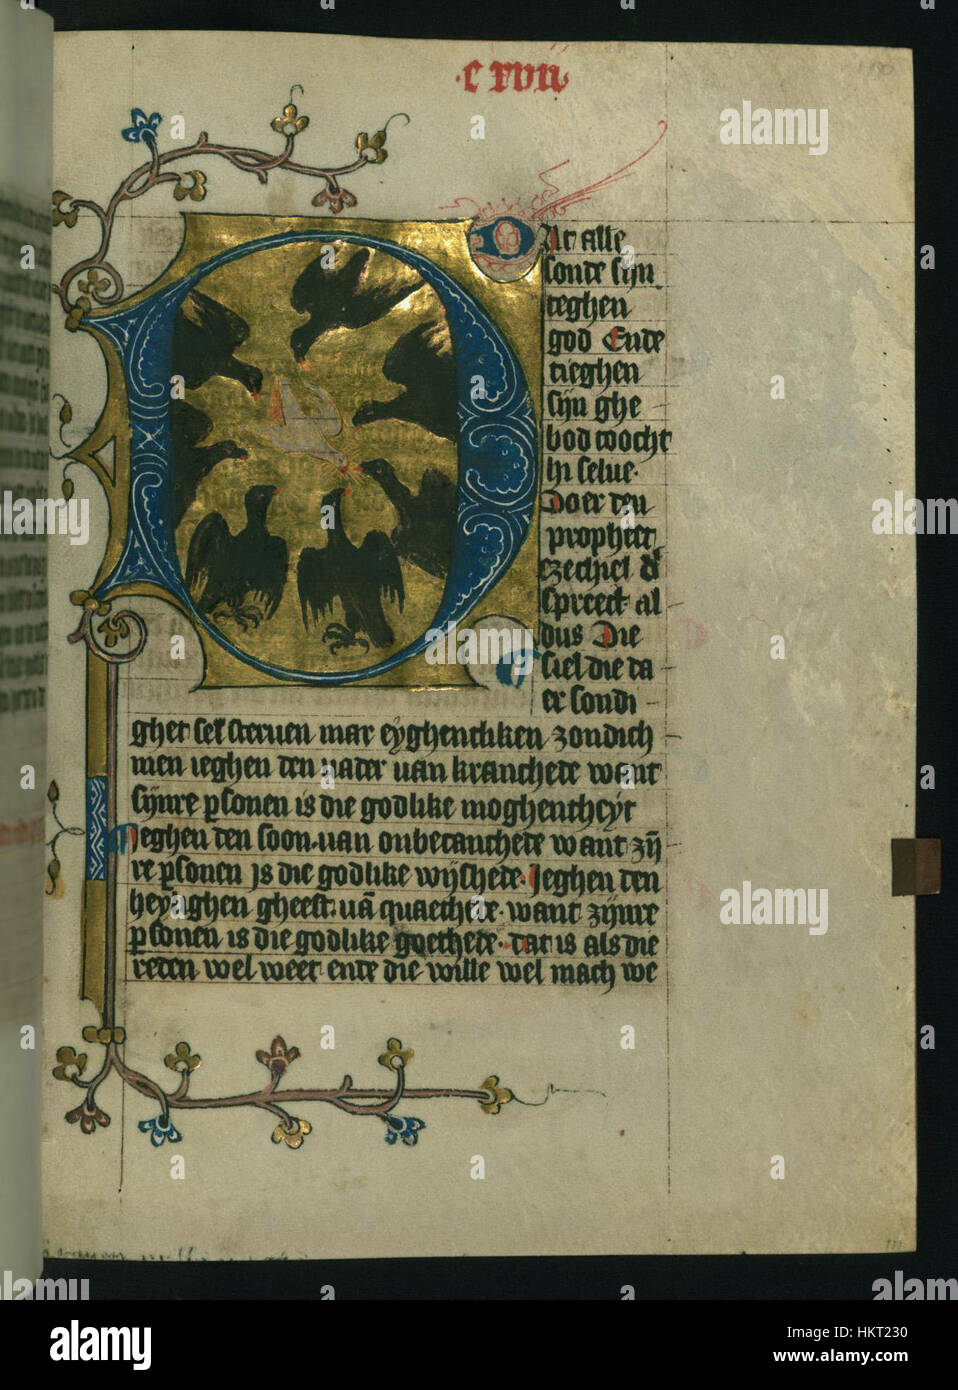 .c xvii.
At alle
sonde sijn
teghen
god Ende
tieghen
sijn ghe
bod wocht
hi selue.
Doer den
prophete
ezechiel
spreect al
dus Die
siel die da
er sondi
ghet sel steruen mar eyghenliken zondich
men ieghen den vader van kranchede want
sijnre psonen is die godlike moghentheyt
Ieghen den soon. van onbecanthede want zij
re psonen js die godlike wijshede. Jeghen den
heylighen gheest. vā quaethede. want zijnre
psonen is die godlike goethede. dat is als die
reden wel weet ende die wille wel mach we
alamy
Image ID: HKT230
www.alamy.com